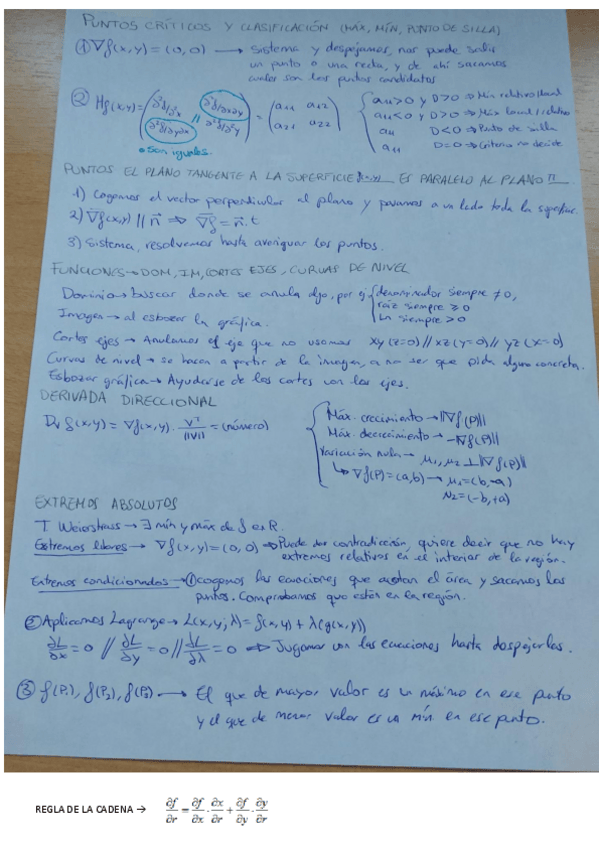 PUNTOS CRÍTICOS Y CLASIFICACIÓN (MÁX, MÍN, PUNTO DE SILLA)
① ∇f(x,y) = (0,0) → Sistema y despejamos, nos puede salir
un punto o una recta, y de ahí sacamos
cuales son los puntos candidatos
② Hf(x,y) = (∂²f/∂²x ∂²f/∂x∂y // ∂²f/∂y∂x ∂²f/∂²y) = (a₁₁ a₁₂ a₂₁ a₂₂) { a₁₁>0 y D>0 ⇒ Mín relativo/local
a₁₁<0 y D>0 ⇒ Máx local/relativo
a₁₁ D<0 ⇒ Punto de silla
a₁₁ D=0 ⇒ Criterio no decide
• Son iguales.
PUNTOS EL PLANO TANGENTE A LA SUPERFICIE f(x,y) ES PARALELO AL PLANO π
1) Cogemos el vector perpendicular al plano y pasamos a un lado toda la superficie.
2) ∇f(x,y) // n ⇒ ∇f = n.t
3) Sistema, resolvemos hasta averiguar los puntos.
FUNCIONES → DOM, IM, CORTES EJES, CURVAS DE NIVEL
Dominio → buscar donde se anula algo, por ej { denominador siempre ≠ 0,
raíz siempre ≥ 0
Ln siempre > 0
Imagen → al esbozar la gráfica.
Cortes ejes → Anulamos el eje que no usamos xy (z=0) // xz (y=0) // yz (x=0)
Curvas de nivel → se hacen a partir de la imagen, a no ser que pida alguna concreta.
Esbozar gráfica → Ayudarse de los cortes con los ejes.
DERIVADA DIRECCIONAL
Dv f(x,y) = ∇f(x,y) · V/||V|| = (número)
{ Máx. crecimiento → ||∇f(P)||
Máx. decrecimiento → -||∇f(P)||
Variación nula → μ₁, μ₂ ⊥ ||∇f(P)||
↳ ∇f(P) = (a,b) → μ₁ = (b,-a)
μ₂ = (-b,+a)
EXTREMOS ABSOLUTOS
T Weierstrass → ∃ mín y máx de f en R.
Extremos libres → ∇f(x,y) = (0,0) ⇒ Puede dar contradicción, quiere decir que no hay
extremos relativos en el interior de la región.
Extremos condicionados → ① cogemos las ecuaciones que acotan el área y sacamos los
puntos. Comprobamos que estén en la región.
② Aplicamos Lagrange → L(x,y,λ) = f(x,y) + λ(g(x,y))
∂L/∂x = 0 // ∂L/∂y = 0 // ∂L/∂λ = 0 ⇒ Jugamos con las ecuaciones hasta despejarlas.
③ f(P₁), f(P₂), f(P₃) → El que de mayor valor es un máximo en ese punto
y el que de menor valor es un mín en ese punto.
REGLA DE LA CADENA → ∂f/∂r = ∂f/∂x · ∂x/∂r + ∂f/∂y · ∂y/∂r